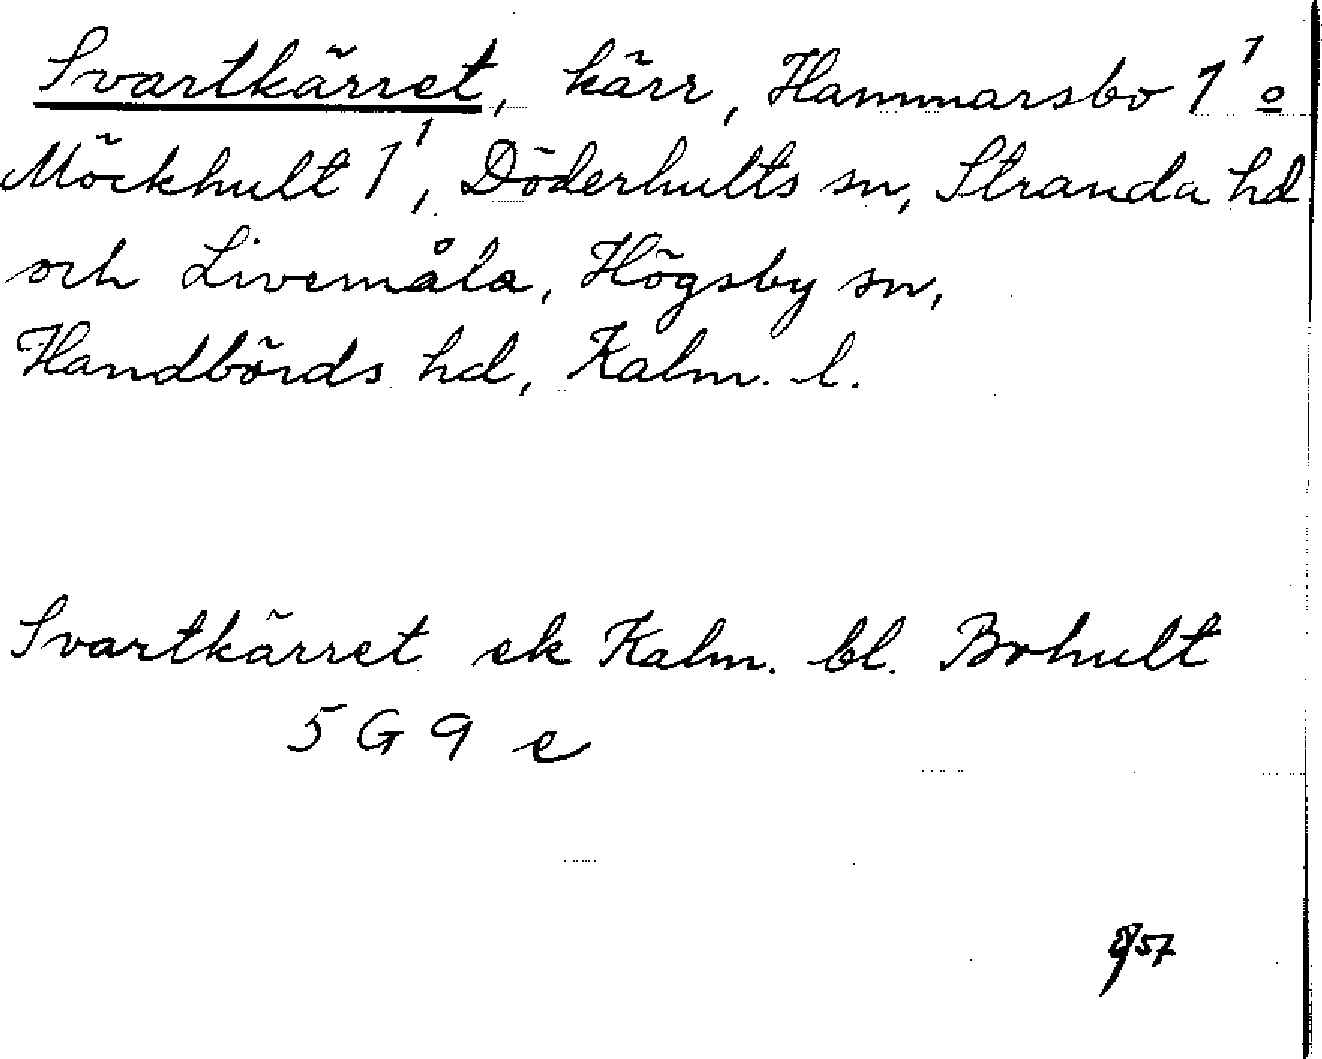 Svartkärret, kärr, Hammarsbo 1¹ o
Möckhult 1¹, Döderhults sn, Stranda hd
och Livemåla, Högsby sn,
Handbörds hd, Kalm. l.
Svartkärret ek Kalm. bl. Bohult
5 G 9 e
57